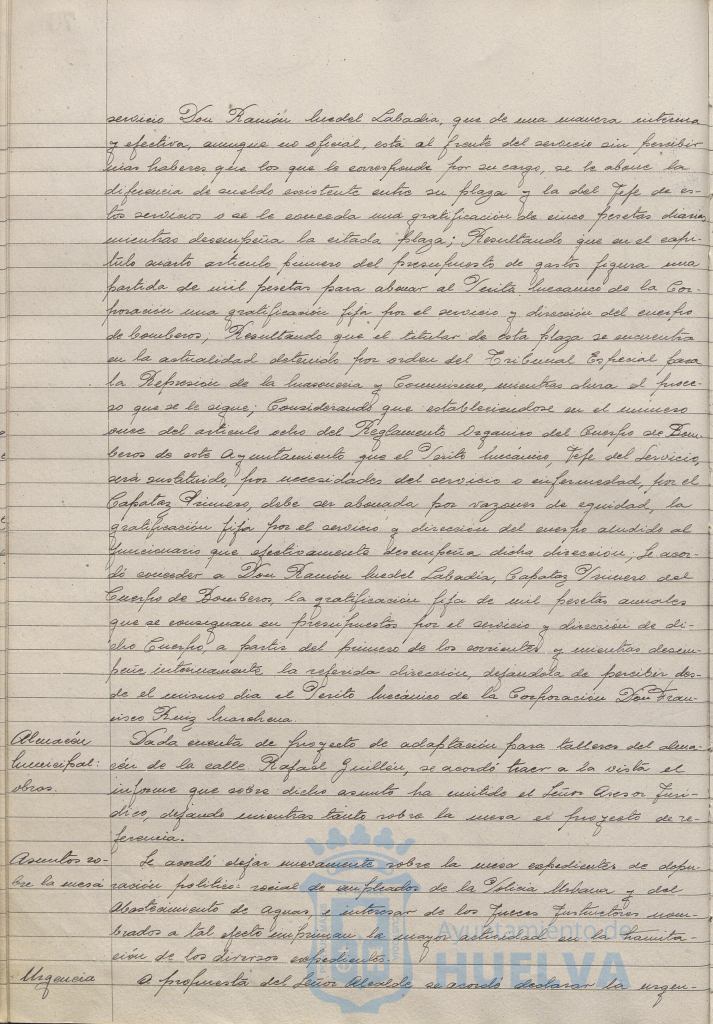 servicio Don Ramón Muedel Labadía, que de una manera interina
y efectiva, aunque no oficial, está al frente del servicio sin percibir
más haberes que los que le corresponde por su cargo, se le abone la
diferencia de sueldo existente entre su plaza y la del Jefe de es-
tos servicios o se le conceda una gratificación de cinco pesetas diarias
mientras desempeña la citada plaza; Resultando que en el capí-
tulo cuarto artículo primero del presupuesto de gastos figura una
partida de mil pesetas para abonar al Perito Mecánico de la Cor-
poración una gratificación fija por el servicio y dirección del cuerpo
de bomberos; Resultando que el titular de esta plaza se encuentra
en la actualidad detenido por orden del Tribunal Especial para
la Represión de la Masonería y Comunismo, mientras dura el proce-
so que se le sigue; Considerando que estableciéndose en el número
once del artículo ocho del Reglamento Orgánico del Cuerpo de Bom-
beros de este Ayuntamiento que el Perito Mecánico, Jefe del Servicio,
será sustituido, por necesidades del servicio o enfermedad, por el
Capataz Primero, debe ser abonada por razones de equidad, la
gratificación fija por el servicio y dirección del cuerpo aludido al
funcionario que efectivamente desempeña dicha dirección; Se acor-
dó conceder a Don Ramón Muedel Labadía, Capataz Primero del
Cuerpo de Bomberos, la gratificación fija de mil pesetas anuales
que se consignan en presupuestos por el servicio y dirección de di-
cho Cuerpo, a partir del primero de los corrientes y mientras desem-
peñe, internamente, la referida dirección, dejándola de percibir des-
de el mismo día el Perito Mecánico de la Corporación Don Fran-
cisco Ruiz Marchena.
Almacén Dada cuenta de proyecto de adaptación para talleres del alma-
Municipal: cén de la calle Rafael Guillén, se acordó traer a la vista el
obras. informe que sobre dicho asunto ha emitido el Señor Asesor Jurí-
dico, dejando mientras tanto sobre la mesa el proyecto de re-
ferencia.
Asuntos so- Se acordó dejar nuevamente sobre la mesa expedientes de depu-
bre la mesa ración político-social de empleados de la Policía Urbana y del
Abastecimiento de aguas, e interesar de los Jueces Instructores nom-
brados a tal efecto impriman la mayor actividad en la tramita-
ción de los diversos expedientes.
Urgencia A propuesta del Señor Alcalde, se acordó declarar la urgen-
Ayuntamiento de
HUELVA